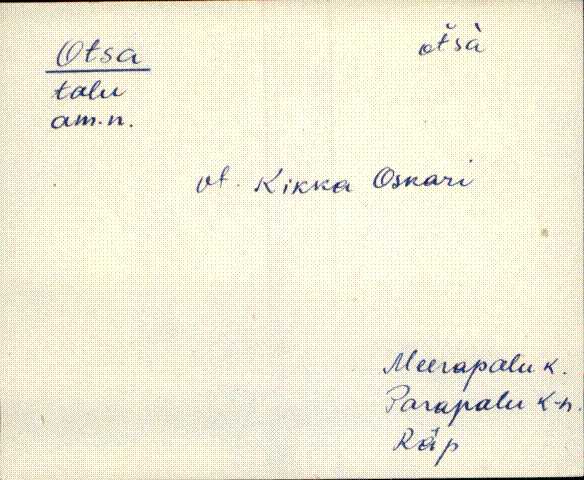 Otsa
otsà
talu
am.n.
vt. Kikka Oskari
Meerapalu k.
Parapalu k-n.
Räp